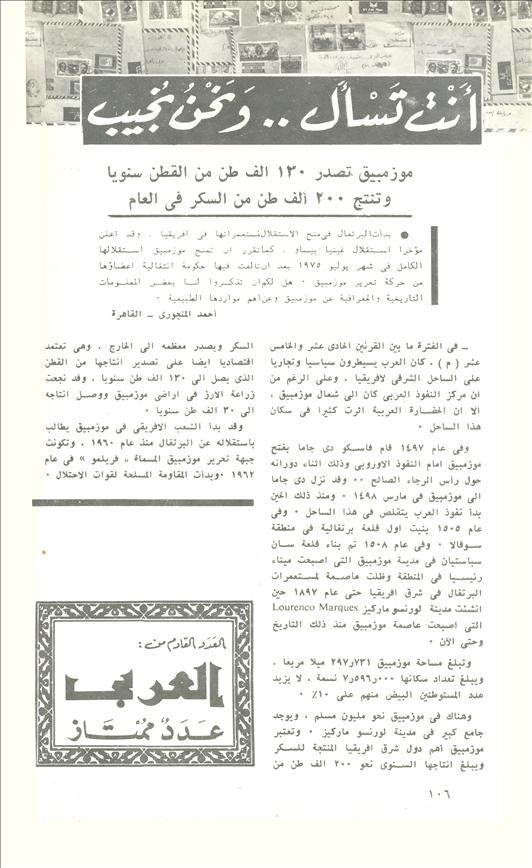 أنت تسأل .. ونحن نجيب
موزمبيق تصدر ١٣٠ الف طن من القطن سنويا
وتنتج ٢٠٠ ألف طن من السكر فى العام
● بدأت البرتغال فى منح الاستقلال لمستعمراتها فى افريقيا ، وقد اعلن
مؤخرا استقلال غينيا بيساو ، كما تقرر ان تمنح موزمبيق استقلالها
الكامل فى شهر يوليو ١٩٧٥ بعد ان تالفت فيها حكومة انتقالية اعضاؤها
من حركة تحرير موزمبيق ٠ هل لكم ان تذكروا لنا بعض المعلومات
التاريخية والجغرافية عن موزمبيق وعن أهم مواردها الطبيعية ٠
أحمد المنجورى ــ القاهرة
ــ فى الفترة ما بين القرنين الحادى عشر والخامس
عشر ( م ) ، كان العرب يسيطرون سياسيا وتجاريا
على الساحل الشرقى لافريقيا ، وعلى الرغم من
ان مركز النفوذ العربى كان الى شمال موزمبيق ،
الا ان الحضارة العربية اثرت كثيرا فى سكان
هذا الساحل ٠
وفى عام ١٤٩٧ قام فاسكو دى جاما بفتح
موزمبيق امام النفوذ الاوروبى وذلك اثناء دورانه
حول رأس الرجاء الصالح ٠٠ وقد نزل دى جاما
الى موزمبيق فى مارس ١٤٩٨ ٠ ومنذ ذلك الحين
بدأ نفوذ العرب يتقلص فى هذا الساحل ٠ وفى
عام ١٥٠٥ بنيت اول قلعة برتغالية فى منطقة
سوفالا ٠ وفى عام ١٥٠٨ تم بناء قلعة سان
سباستيان فى مدينة موزمبيق التى اصبحت ميناء
رئيسيا فى المنطقة وظلت عاصمة لمستعمرات
البرتغال فى شرق افريقيا حتى عام ١٨٩٧ حين
انشئت مدينة لورنسو ماركيز Lourenco Marques
التى اصبحت عاصمة موزمبيق منذ ذلك التاريخ
وحتى الآن ٠
وتبلغ مساحة موزمبيق ٢٩٧٫٧٣١ ميلا مربعا ،
ويبلغ تعداد سكانها ٧٫٥٩٦٫٠٠٠ نسمة ، لا يزيد
عدد المستوطنين البيض منهم على ١٠٪ ٠
وهناك فى موزمبيق نحو مليون مسلم ، ويوجد
جامع كبير فى مدينة لورنسو ماركيز ٠ وتعتبر
موزمبيق أهم دول شرق افريقيا المنتجة للسكر
ويبلغ انتاجها السنوى نحو ٢٠٠ الف طن من
السكر ويصدر معظمه الى الخارج ، وهى تعتمد
اقتصاديا ايضا على تصدير انتاجها من القطن
الذى يصل الى ١٣٠ الف طن سنويا ، وقد نجحت
زراعة الارز فى اراضى موزمبيق ووصل انتاجه
الى ٣٠ الف طن سنويا ٠
وقد بدأ الشعب الافريقى فى موزمبيق يطالب
باستقلاله عن البرتغال منذ عام ١٩٦٠ ، وتكونت
جبهة تحرير موزمبيق المسماة « فريلمو » فى عام
١٩٦٢ ٠ وبدأت المقاومة المسلحة لقوات الاحتلال ٠
العدد القادم من :
العربى
عدد ممتاز
١٠٦